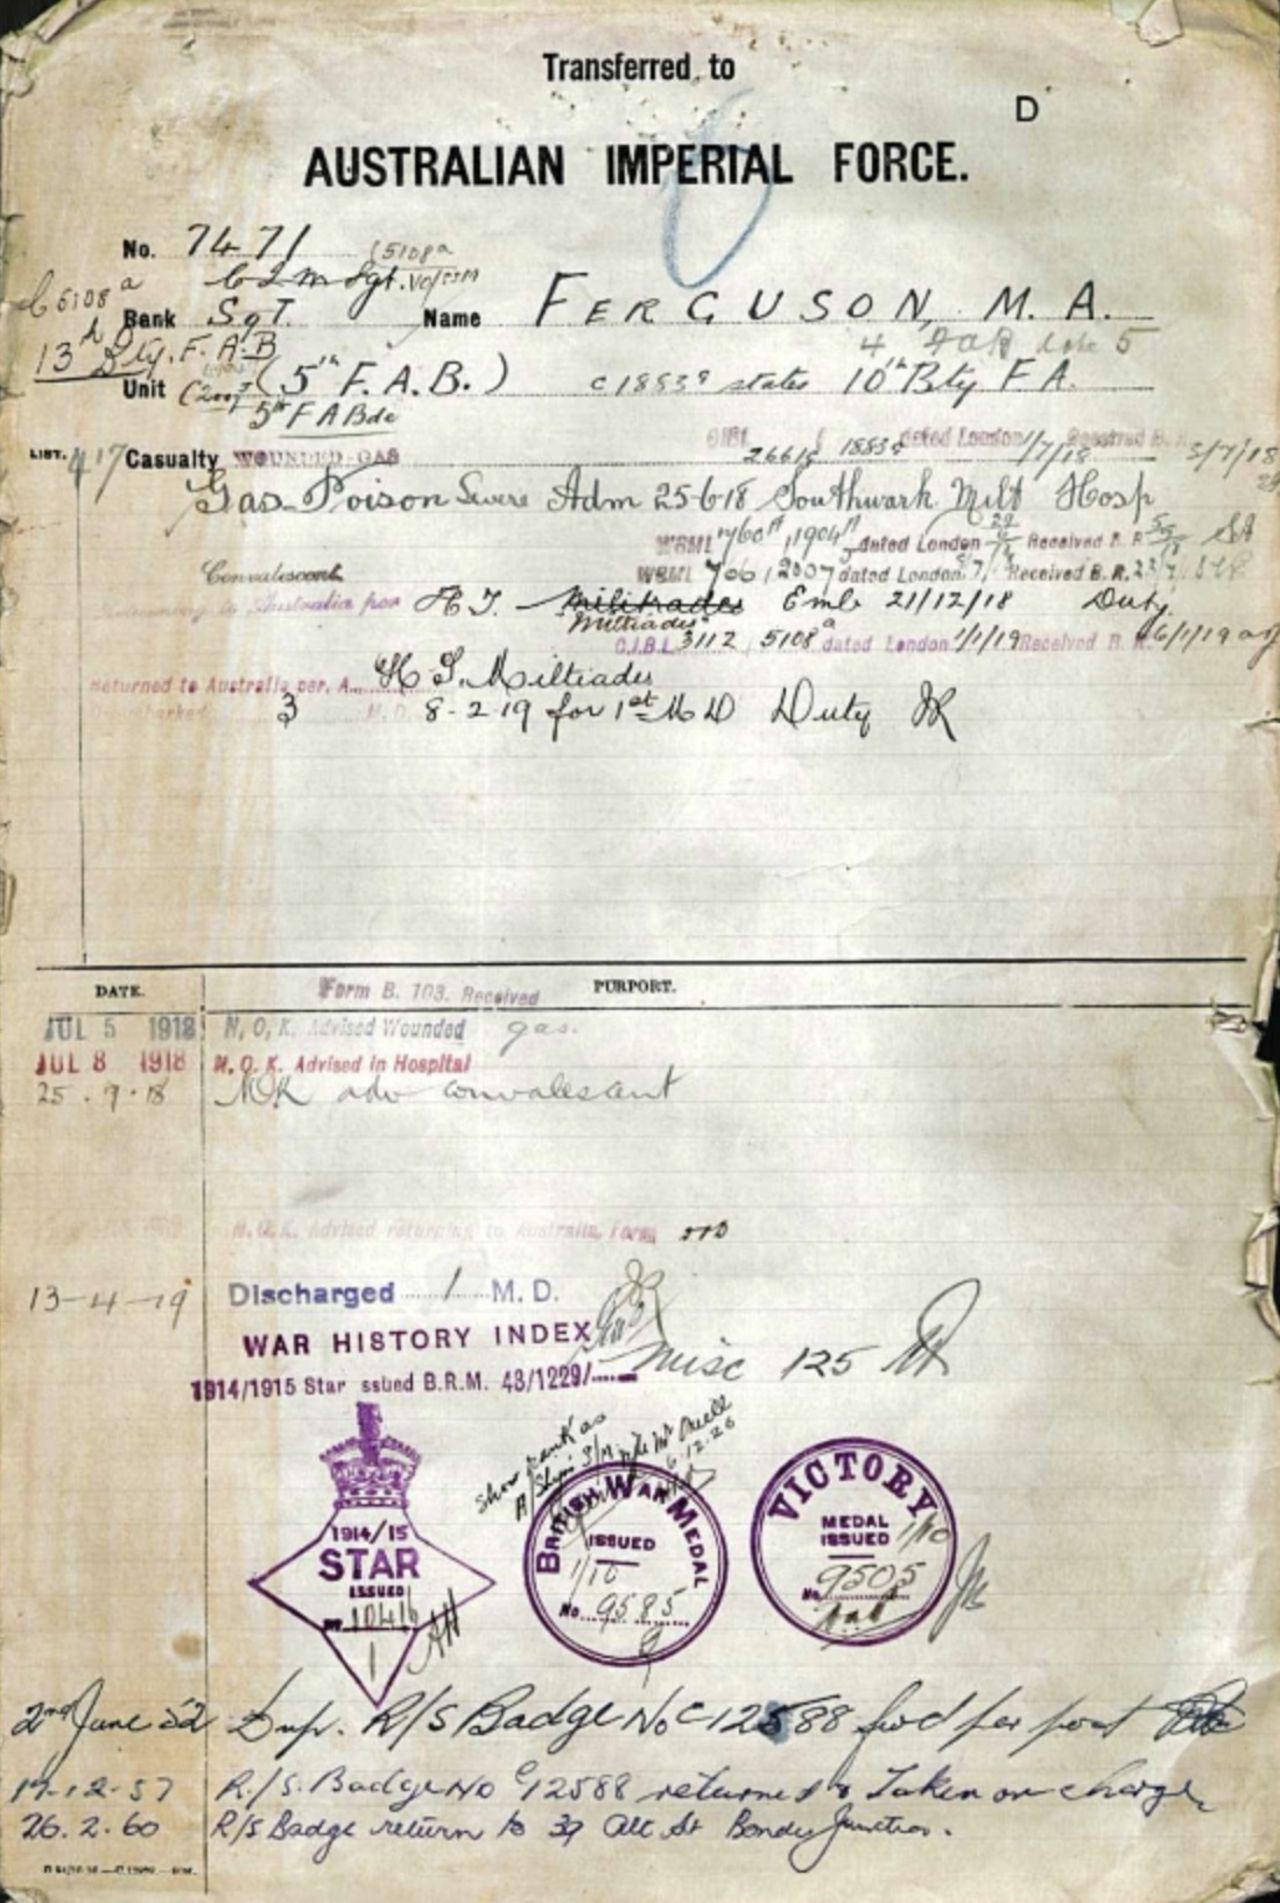 Transferred to
D
AUSTRALIAN IMPERIAL FORCE.
No. 7471 (5108a
Rank Sgt. Name FERGUSON, M. A.
C5108a
13th Bty. F.A.B
Unit (5th F.A.B.) C1883a states 10th Bty F A.
5th F A Bde
LIST. 417 Casualty WOUNDED-GAS dated London 1/7/18 Received B. R. 5/7/18
Gas Poison Severe Adm 25-6-18 Southwark Milt Hosp
W8M1 760A, 1904A dated London Received B. R.
Convalescent W8M1 706, 2007 dated London Received B. R.
Returning to Australia per H.T. Militrades Emb 21/12/18 Duty.
Miltiades
C.I.B.L 3112, 5108a dated London 1/1/19 Received B. R. 6/1/19
Returned to Australia per. A. H. T. Miltiades
Disembarked 3 M. D. 8-2-19 for 1st M D Duty
DATE. Form B. 103. Received PURPORT.
JUL 5 1918 N. O. K. Advised Wounded gas.
JUL 8 1918 N. O. K. Advised in Hospital
25.9.18 NOK adv convalescent
N. O. K. Advised returning to Australia, Form
13-4-19 Discharged 1 M. D.
WAR HISTORY INDEX
Misc 125
1914/1915 Star issued B.R.M. 48/1229/
show rank as
6.12.26
1914/15
STAR
ISSUED
No 10416
1
BRITISH WAR MEDAL
ISSUED
1/10
No. 9585
VICTORY
MEDAL
ISSUED 1/10
No. 9505
2nd June 52 Dup. R/S Badge No C12588 fwd per post
17-12-57 R/S. Badge No C12588 returned & Taken on charge
26.2.60 R/S Badge return to 39 Alt St Bondi Junction.